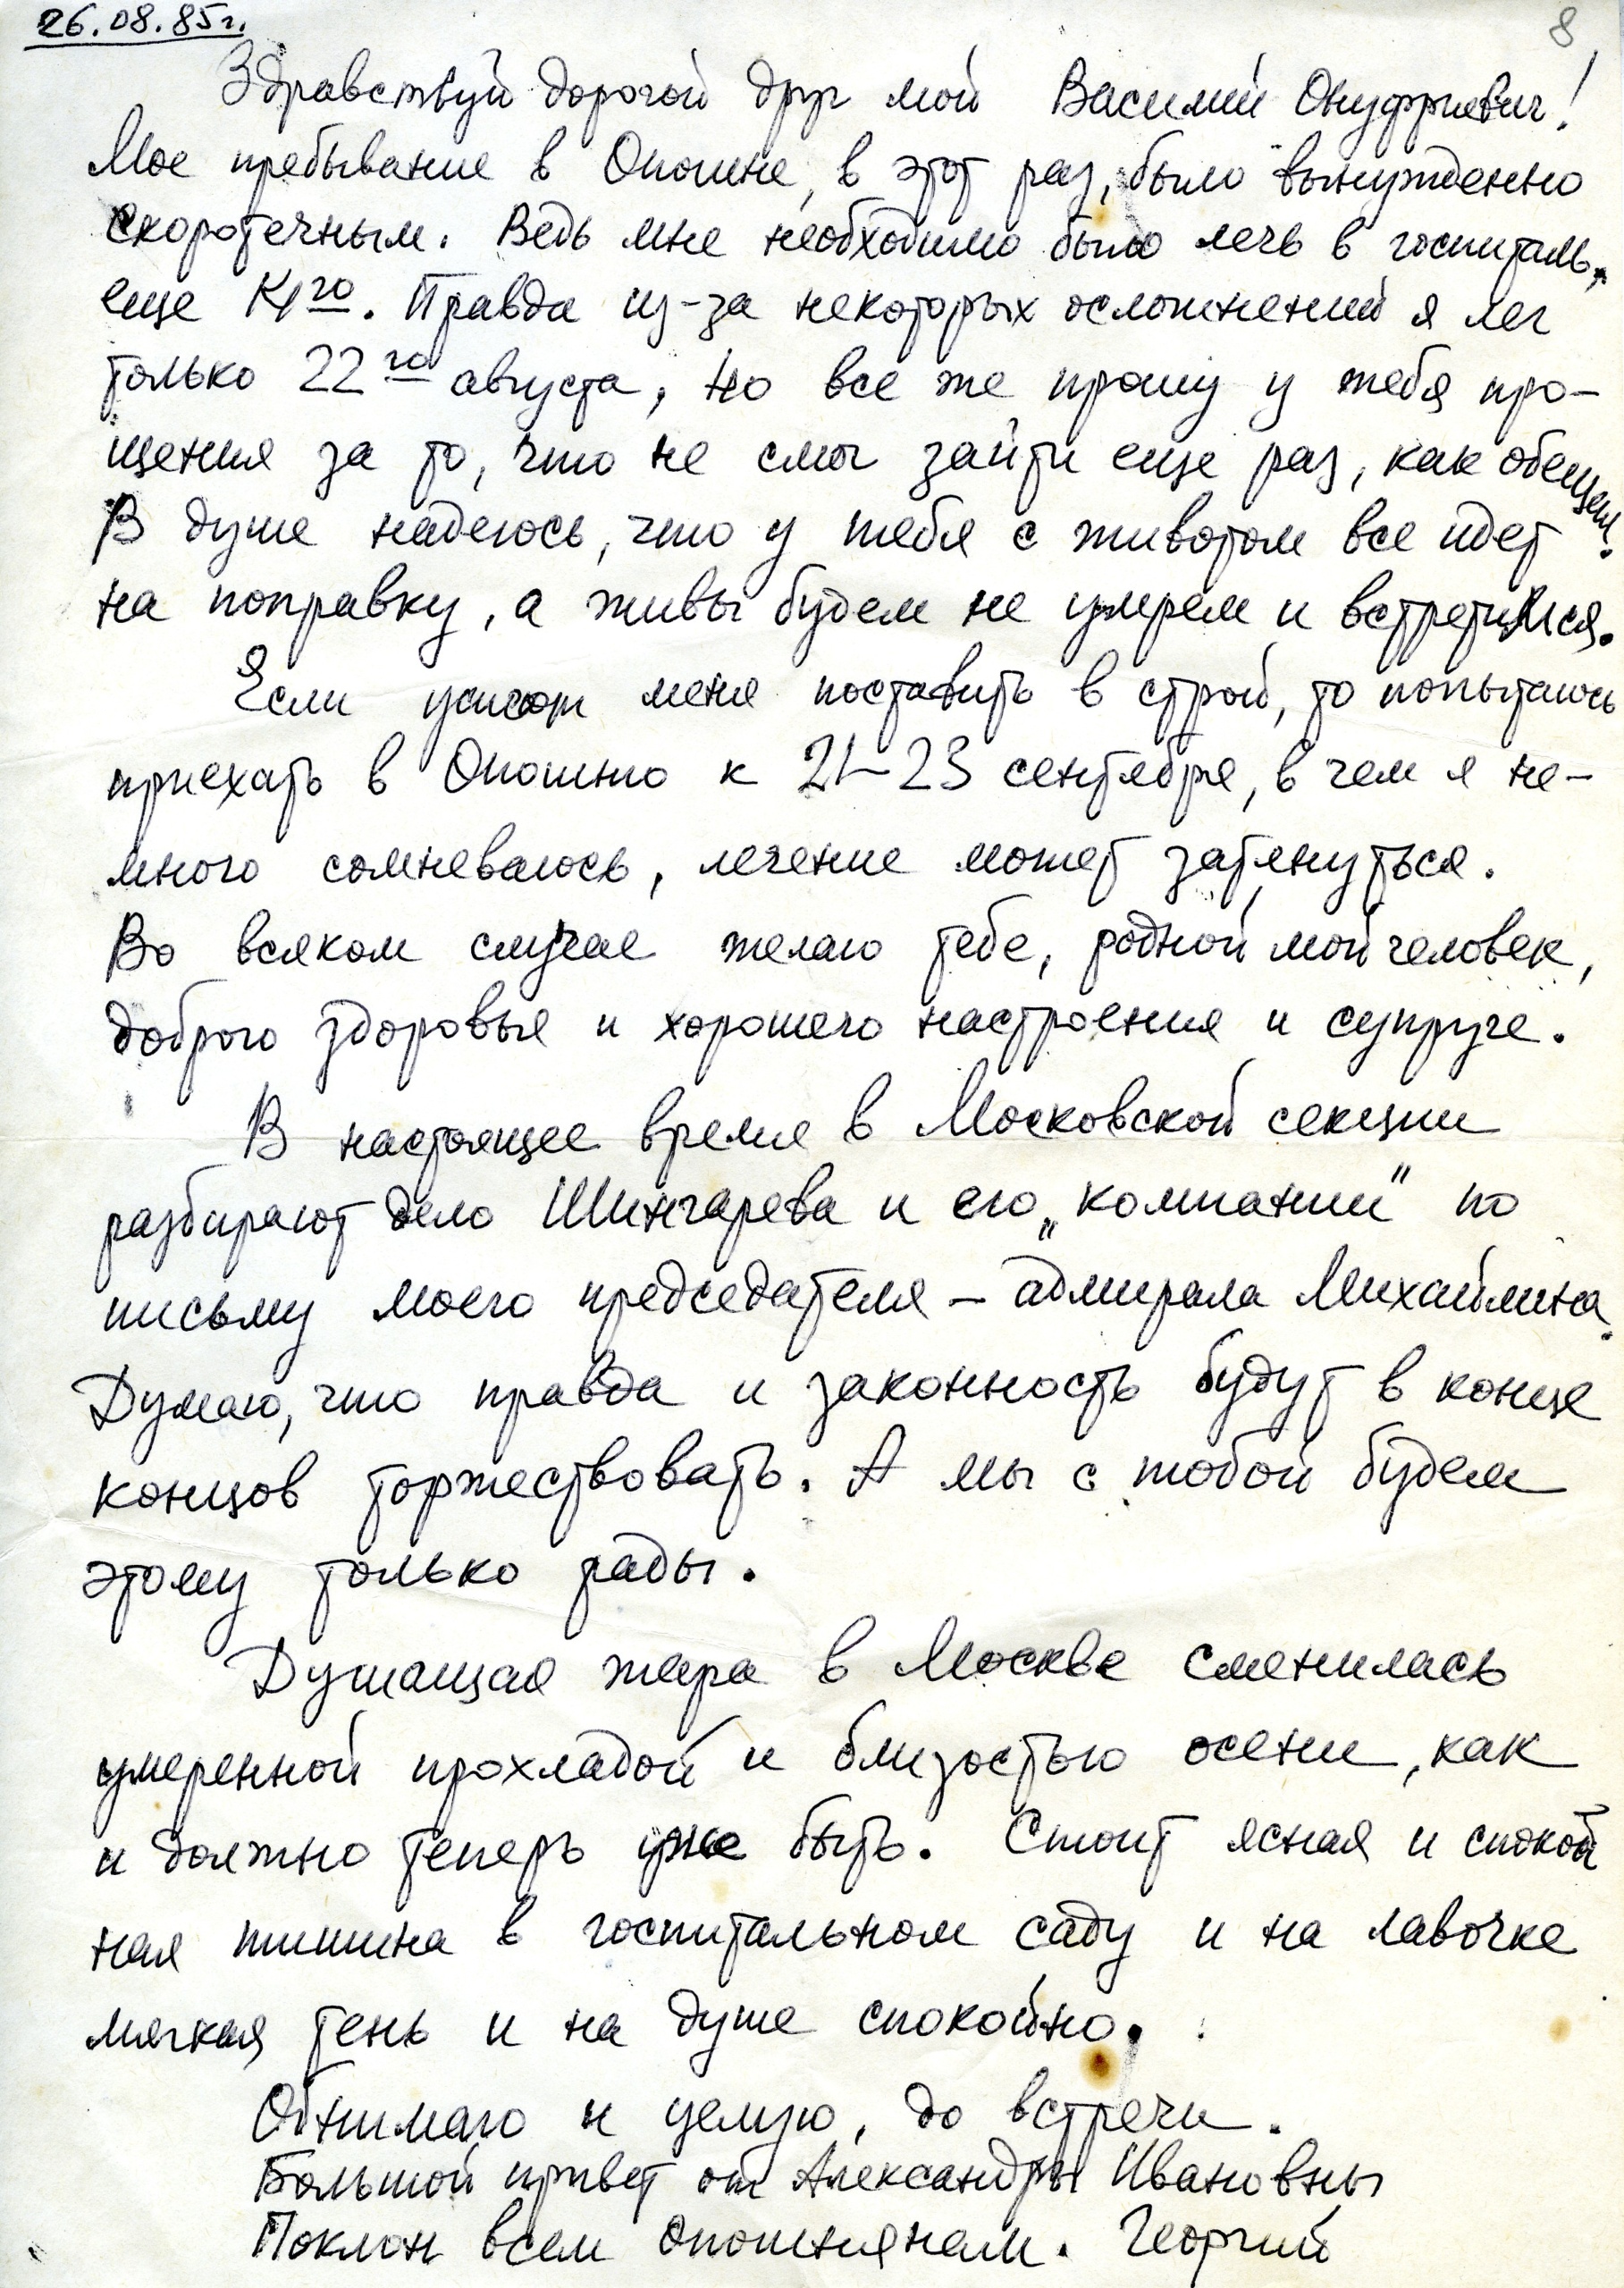 26.08.85г.
8
Здравствуй дорогой друг мой Василий Онуфриевич!
Мое пребывание в Опошне, в этот раз, было вынужденно
скоротечным. Ведь мне необходимо было лечь в госпиталь,
еще 14го. Правда из-за некоторых осложнений я лег
только 22го августа, но все же прошу у тебя про-
щения за то, что не смог зайти еще раз, как обещал.
В душе надеюсь, что у тебя с животом все идет
на поправку, а живы будем не умрем и встретимся.
Если успеют меня поставить в строй, то попытаюсь
приехать в Опошню к 21-23 сентября, в чем я не-
много сомневаюсь, лечение может затянуться.
Во всяком случае желаю тебе, родной мой человек,
доброго здоровья и хорошего настроения и супруге.
В настоящее время в Московской секции
разбирают дело Шингарева и его „компании" по
письму моего председателя – адмирала Михайлина.
Думаю, что правда и законность будут в конце
концов торжествовать. А мы с тобой будем
этому только рады.
Душащая жара в Москве сменилась
умеренной прохладой и близостью осени, как
и должно теперь уже быть. Стоит ясная и спокой
ная тишина в госпитальном саду и на лавочке
мягкая тень и на душе спокойно.
Обнимаю и целую, до встречи.
Большой привет от Александры Ивановны
Поклон всем опошнянам. Георгий